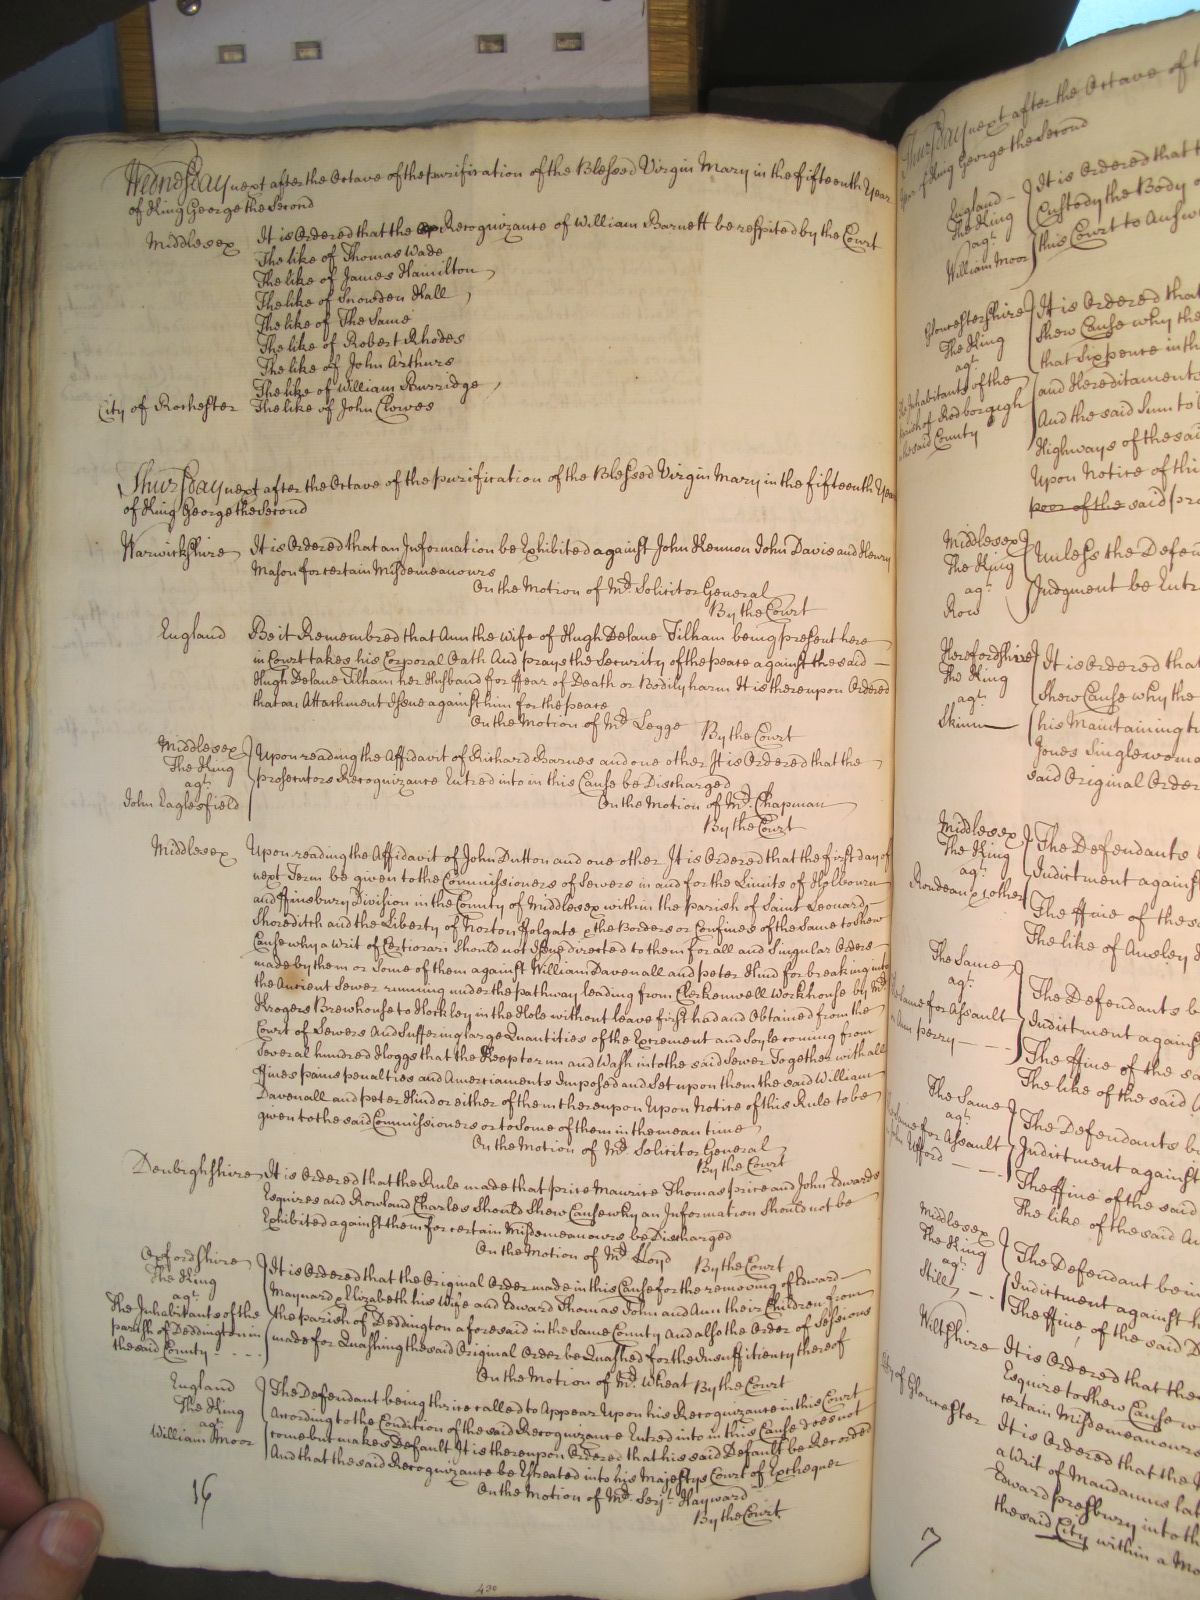 Wednesday next after the Octave of the purification of the Blessed Virgin Mary in the fifteenth Year
of King George the Second
Middlesex It is Ordered that the Recognizance of William Barnett be respited by the Court
The like of Thomas Wade
The like of James Hamilton
The like of Snowden Hall
The like of The Same
The like of Robert Rhodes
The like of John Arthurs
The like of William Burridge
City of Rochester The like of John Clowes
Thursday next after the Octave of the purification of the Blessed Virgin Mary in the fifteenth Year
of King George the Second
Warwickshire It is Ordered that an Information be Exhibited against John Kennon John Davis and Henry
Mason for certain Misdemeanours
On the Motion of Mr. Solicitor General
By the Court
England Be it Remembred that Ann the Wife of Hugh Delane Tilham being present here
in Court takes his Corporal Oath And prays the Security of the peace against the said
Hugh Delane Tilham her Husband for ffear of Death or Bodily harm It is thereupon Ordered
that an Attachment Issue against him for the peace
On the Motion of Mr. Legge By the Court
Middlesex
The King
agt.
John Eaglesfield
Upon reading the Affidavit of Richard Barnes and one other It is Ordered that the
prosecutors Recognizance Entred into in this Cause be Discharged
On the Motion of Mr. Chapman
By the Court
Middlesex Upon reading the Affidavit of John Dutton and one other It is Ordered that the first day of
next Term be given to the Commissioners of Sewers in and for the Limits of Holbourn
and ffinsbury Division in the County of Middlesex within the parish of Saint Leonard
Shoreditch and the Liberty of Norton ffolgate & the Borders or Confines of the Same to Shew
Cause why a Writ of Certiorari Should not Issue directed to them for all and Singular Orders
made by them or Some of them against William Davenall and peter Hind for breaking into
the Ancient Sewer running under the pathway leading from Clerkenwell Workhouse by Mr.
Krogers Brewhouse to Hockley in the Hole without leave first had and Obtained from the
Court of Sewers And Suffering large Quantities of the Excrement and Soyle coming from
Several hundred Hoggs that the Keep to run and Wash into the said Sewer Together with all
ffines pains penalties and Amerciaments Imposed and Set upon them the said William
Davenall and peter Hind or either of them thereupon Upon Notice of this Rule to be
given to the said Commissioners or to Some of them in the mean time
On the Motion of Mr. Solicitor General
By the Court
Denbighshire It is Ordered that the Rule made that price Maurice Thomas price and John Edwards
Esquires and Rowland Charles Should Shew Cause why an Information Should not be
Exhibited against them for certain Misdemeanours be Discharged
On the Motion of Mr. Lloyd By the Court
Oxfordshire
The King
agt.
The Inhabitants of the
parish of Deddington in
the said County
It is Ordered that the Original Order made in this Cause for the removing of Edward
Maynard & Elizabeth his Wife and Edward Thomas John and Ann their Children from
the parish of Deddington aforesaid in the Same County And also the Order of Sessions
made for Quashing the said Original Order be Quashed for the Insufficiency thereof
On the Motion of Mr. Wheat By the Court
England
The King
agt.
William Moor
The Defendant being thrice called to Appear Upon his Recognizance in this Court
According to the Condition of the said Recognizance Entred into in this Cause does not
come but makes Default It is thereupon Ordered that his said Default be Recorded
And that the said Recognizance be Estreated into his Majestys Court of Exchequer
On the Motion of Mr. Serjt. Hayward
By the Court
16
430
Thursday next after the Octave of
Year of King George the Second
England
The King
agt.
William Moor
It is Ordered that
Custody the Body
this Court to Answ
Gloucestershire
The King
agt.
The Inhabitants of the
parish of Rodborough
the said County
It is Ordered that
Shew Cause why the
that Sixpence in the
and Hereditaments
And the said Sum to
Highways of the sai
Upon Notice of thi
poor of the said pr
Middlesex
The King
agt.
Row
Unless the Defen
Judgment be Entr
Herefordshire
The King
agt.
Skinn
It is Ordered that
Shew Cause why the
his Maintaining
Jones Singlewoma
said Original Order
Middlesex
The King
agt.
Rondeau & other
The Defendants
Indictment against
The ffine of thes
The like of Ansley
The Same
agt.
The Same for Assault
on Ann perry
The Defendants b
Indictment against
The ffine of the sa
The like of the said
The Same
agt.
Same for Assault
The Defendants b
Indictment against
The ffine of the said
The like of the said An
Middlesex
The King
agt.
Still
The Defendant bein
Indictment against h
The ffine of the said D
Wiltshire It is Ordered that the
Esquire to Shew Cause w
certain Misdemeanours
City of Gloucester It is Ordered that the
a Writ of Mandamus lat
Edward presbury into th
the said City within a Mo
7